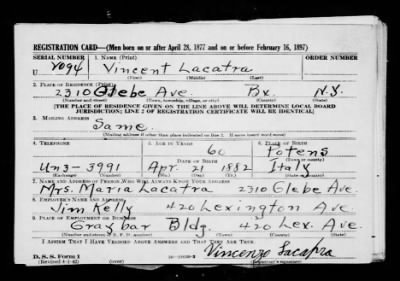 REGISTRATION CARD—(Men born on or after April 28, 1877 and on or before February 16, 1897)
SERIAL NUMBER 1. NAME (Print) ORDER NUMBER
U 4094 Vincent Lacatra
(First) (Middle) (Last)
2. PLACE OF RESIDENCE (Print)
2310 Glebe Ave. Bx. N.Y.
(Number and street) (Town, township, village, or city) (County) (State)
[THE PLACE OF RESIDENCE GIVEN ON THE LINE ABOVE WILL DETERMINE LOCAL BOARD
JURISDICTION; LINE 2 OF REGISTRATION CERTIFICATE WILL BE IDENTICAL]
3. MAILING ADDRESS
Same
[Mailing address if other than place indicated on line 2. If same insert word same]
4. TELEPHONE 5. AGE IN YEARS 6. PLACE OF BIRTH
60 Potens
DATE OF BIRTH (Town or county)
Un 3-3991 Apr. 21 1882 Italy
7. NAME AND ADDRESS OF PERSON WHO WILL ALWAYS KNOW YOUR ADDRESS
Mrs. Maria Lacatra 2310 Glebe Ave.
8. EMPLOYER'S NAME AND ADDRESS
Jim Kelly 420 Lexington Ave
9. PLACE OF EMPLOYMENT OR BUSINESS
Graybar Bldg. 420 Lex. Ave.
(Number and street or R. F. D. number) (Town) (County) (State)
I AFFIRM THAT I HAVE VERIFIED ABOVE ANSWERS AND THAT THEY ARE TRUE.
D. S. S. Form 1
(Revised 4-1-42) Vincenzo Lacapra